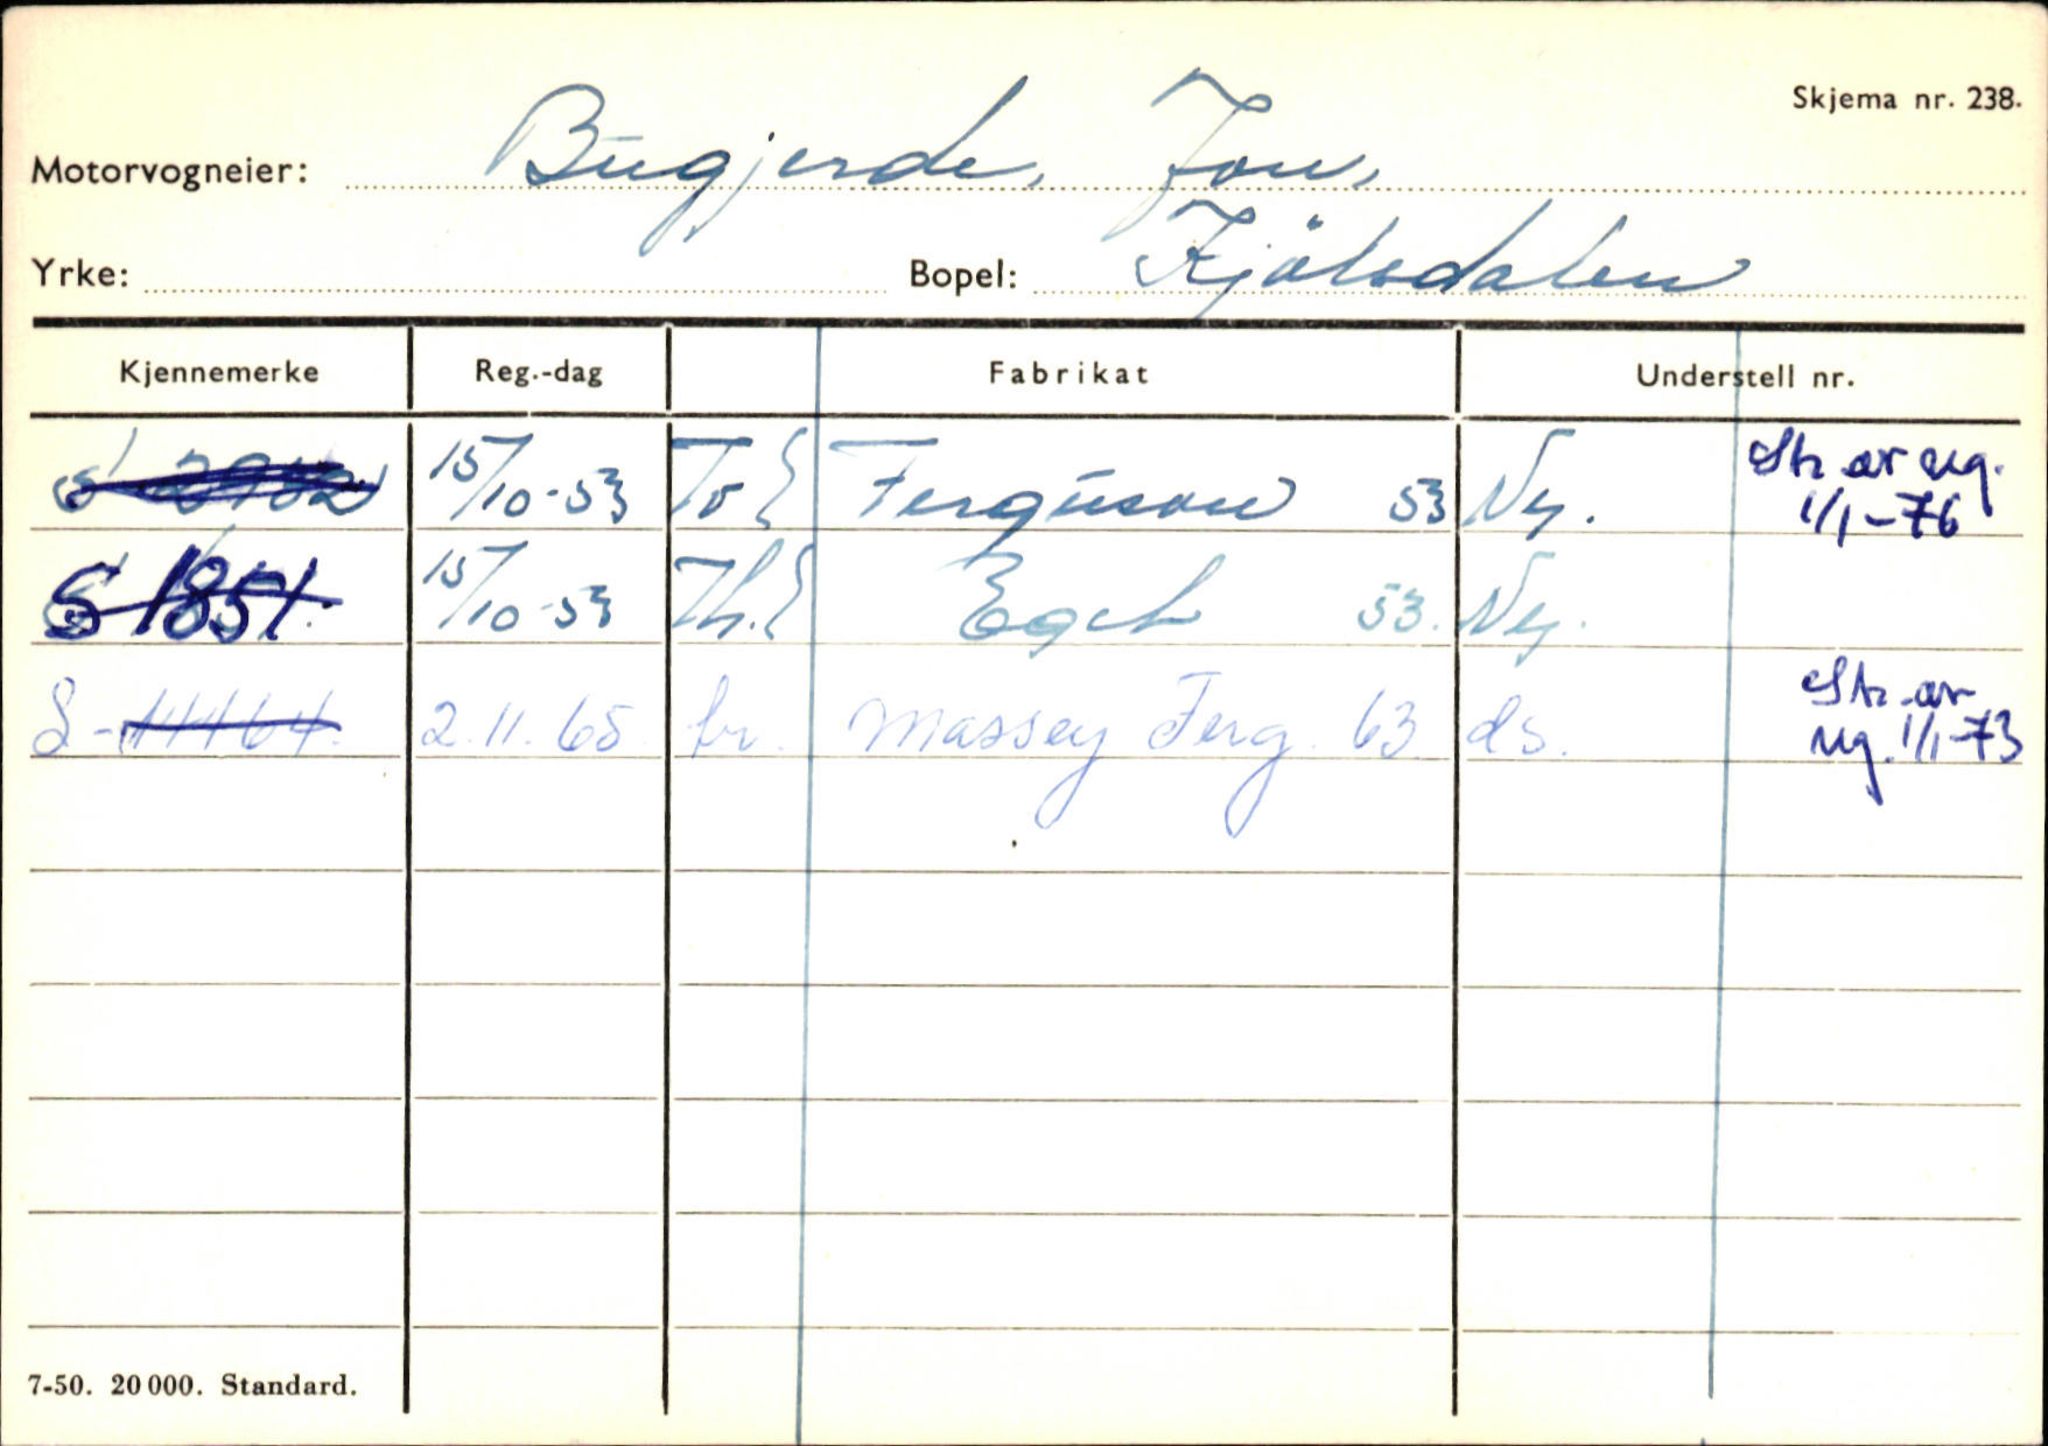 Skjema nr. 238.
Motorvogneier: Bugjerde, Jon,
Yrke: Bopel: Kjölsdalen
Kjennemerke Reg.-dag Fabrikat Understell nr.
S 15/10-53 To { Ferguson 53 Ny. Str. av reg. 1/1-76
S 1851. 15/10-53 Th. { Egel 53. Ny.
S- 11164. 2.11.65. br. Massey Ferg. 63 ds. Str. av reg. 1/1-73
7-50. 20 000. Standard.